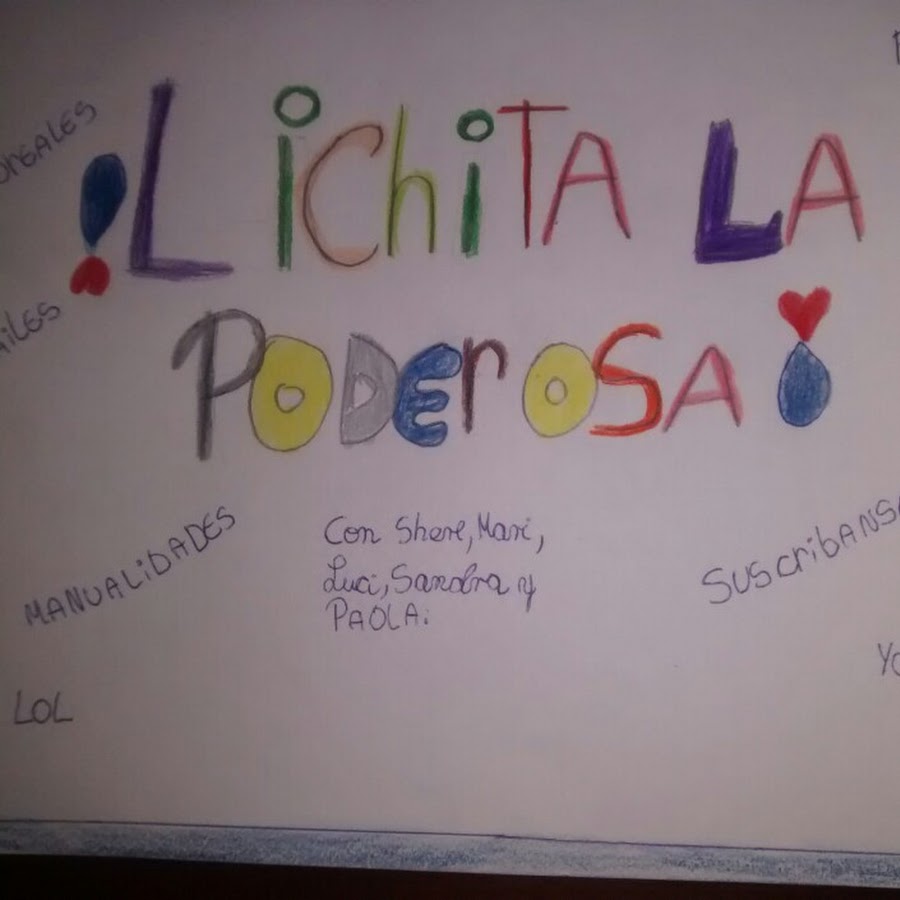 OrEALES
!LichiTA LA
AiLES
PODErOSA¡
MANUALiDADES
Con Shere, Mari,
Luci, Sandra y
PAOLA.
SUScribANS
LOL